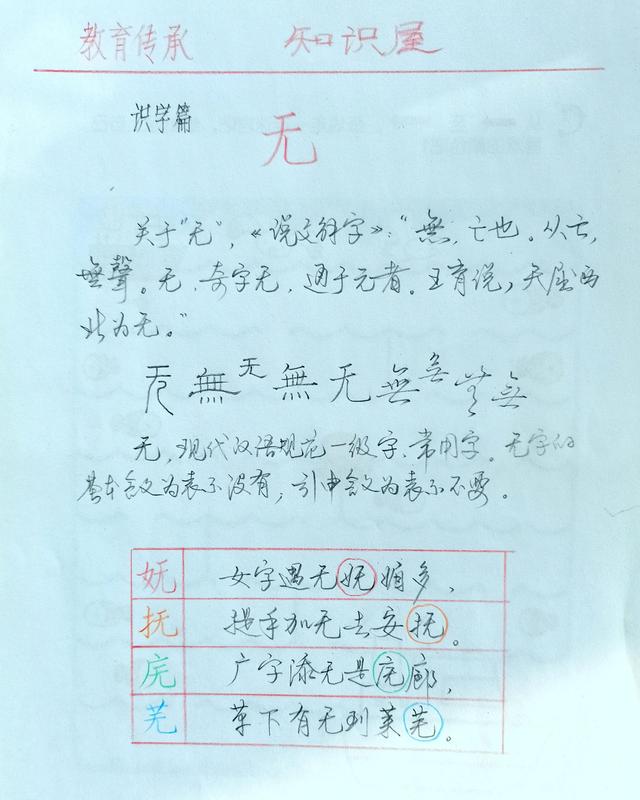 教育传承 知识屋
识字篇
无
关于“无”，《说文解字》：“無，亡也。从亡，
無聲。无，奇字无，通于元者。王育说，天屈西
北为无。”
无 無 无 無 无 無 無 無 無
无，现代汉语规范一级字、常用字。无字的
基本含义为表示没有，引申含义为表示不要。
妩 女字遇无妩媚多，
抚 提手加无去安抚。
庑 广字添无是庑廊，
芜 草下有无到莱芜。